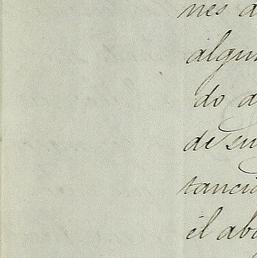 nes a
algun
do a
de su
tanci
él abo